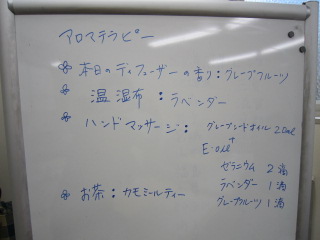 アロマテラピー
本日のディフューザーの香り:グレープフルーツ
温湿布:ラベンダー
ハンドマッサージ:グレープシードオイル 20ml
+
E.Oil
ゼラニウム 2滴
ラベンダー 1滴
グレープフルーツ 1滴
お茶:カモミールティー